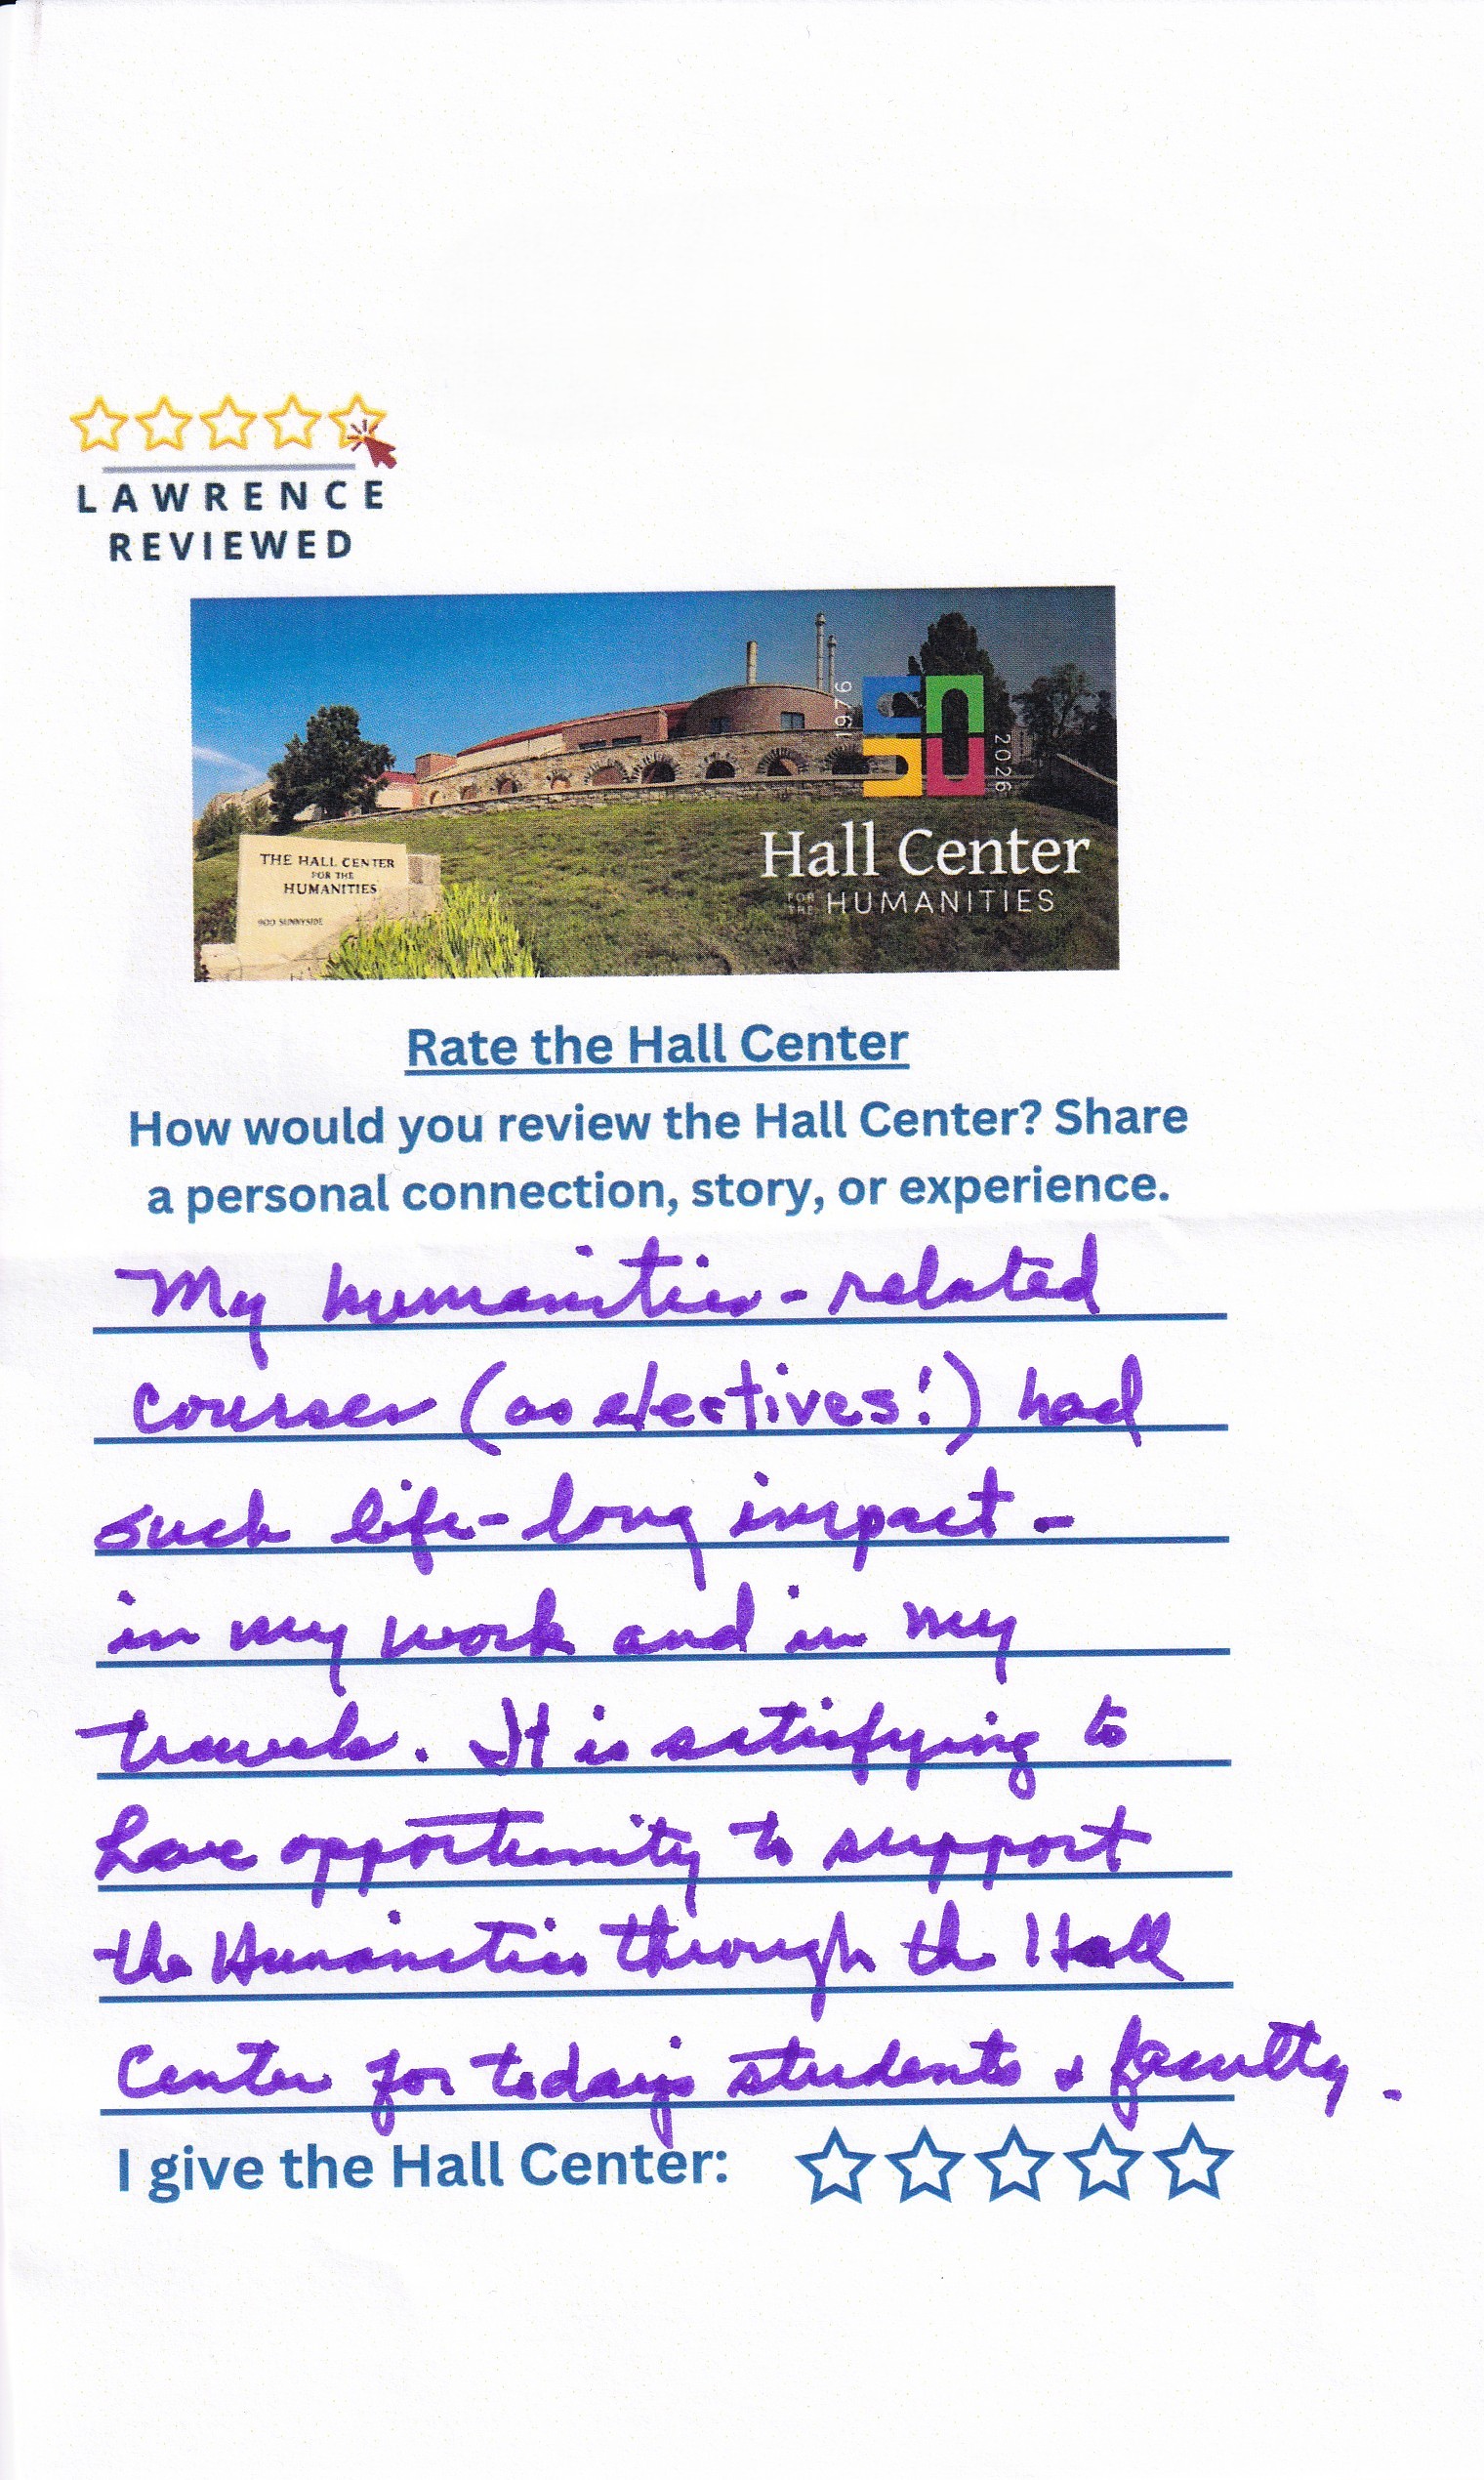 LAWRENCE
REVIEWED
1976
50
2026
THE HALL CENTER
FOR THE
HUMANITIES
900 SUNNYSIDE
Hall Center
FOR THE HUMANITIES
Rate the Hall Center
How would you review the Hall Center? Share
a personal connection, story, or experience.
My humanities-related
courses (as electives!) had
such life-long impact -
in my work and in my
travels. It is satisfying to
have opportunity to support
the Humanities through the Hall
Center for today's students & faculty.
I give the Hall Center: